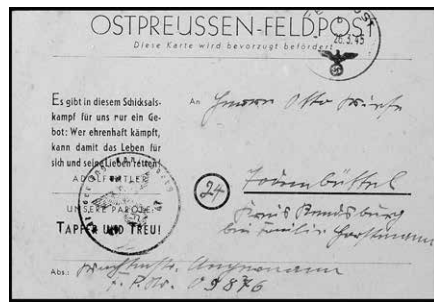 OSTPREUSSEN-FELDPOST
Diese Karte wird bevorzugt befördert
26.3.45
Es gibt in diesem Schicksals-
kampf für uns nur ein Ge-
bot: Wer ehrenhaft kämpft,
kann damit das Leben für
sich und seine Lieben retten!
ADOLF HITLER
UNSERE PAROLE:
TAPFER UND TREU!
An Herrn Otto
24
Kreis Rendsburg
bei Familie Horstmann
Abs.: